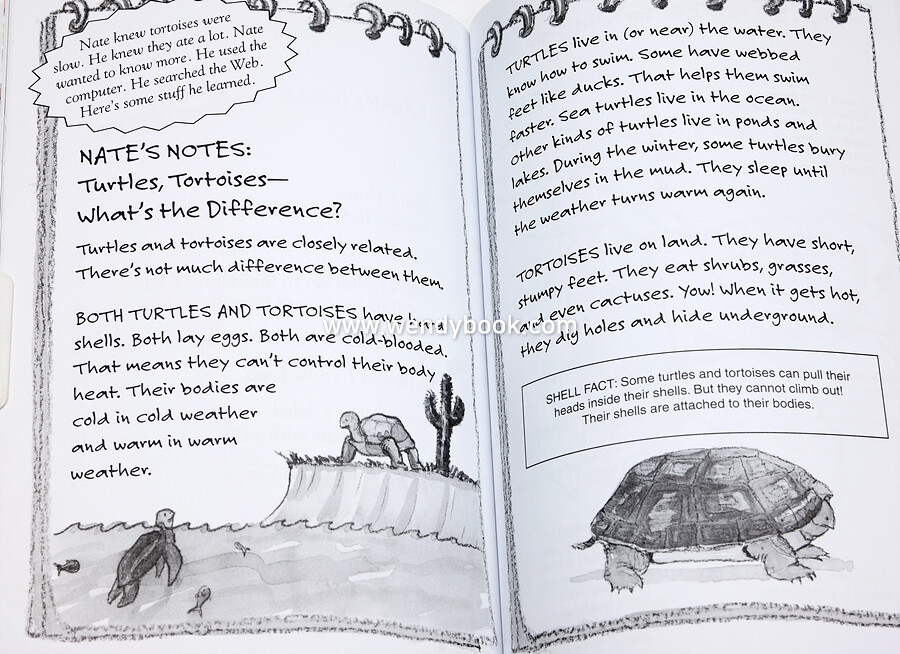 Nate knew tortoises were
slow. He knew they ate a lot. Nate
wanted to know more. He used the
computer. He searched the Web.
Here's some stuff he learned.
NATE'S NOTES:
Turtles, Tortoises—
What's the Difference?
Turtles and tortoises are closely related.
There's not much difference between them.
BOTH TURTLES AND TORTOISES have hard
shells. Both lay eggs. Both are cold-blooded.
That means they can't control their body
heat. Their bodies are
cold in cold weather
and warm in warm
weather.
TURTLES live in (or near) the water. They
know how to swim. Some have webbed
feet like ducks. That helps them swim
faster. Sea turtles live in the ocean.
Other kinds of turtles live in ponds and
lakes. During the winter, some turtles bury
themselves in the mud. They sleep until
the weather turns warm again.
TORTOISES live on land. They have short,
stumpy feet. They eat shrubs, grasses,
and even cactuses. Yow! When it gets hot,
they dig holes and hide underground.
SHELL FACT: Some turtles and tortoises can pull their
heads inside their shells. But they cannot climb out!
Their shells are attached to their bodies.
www.wendybook.com